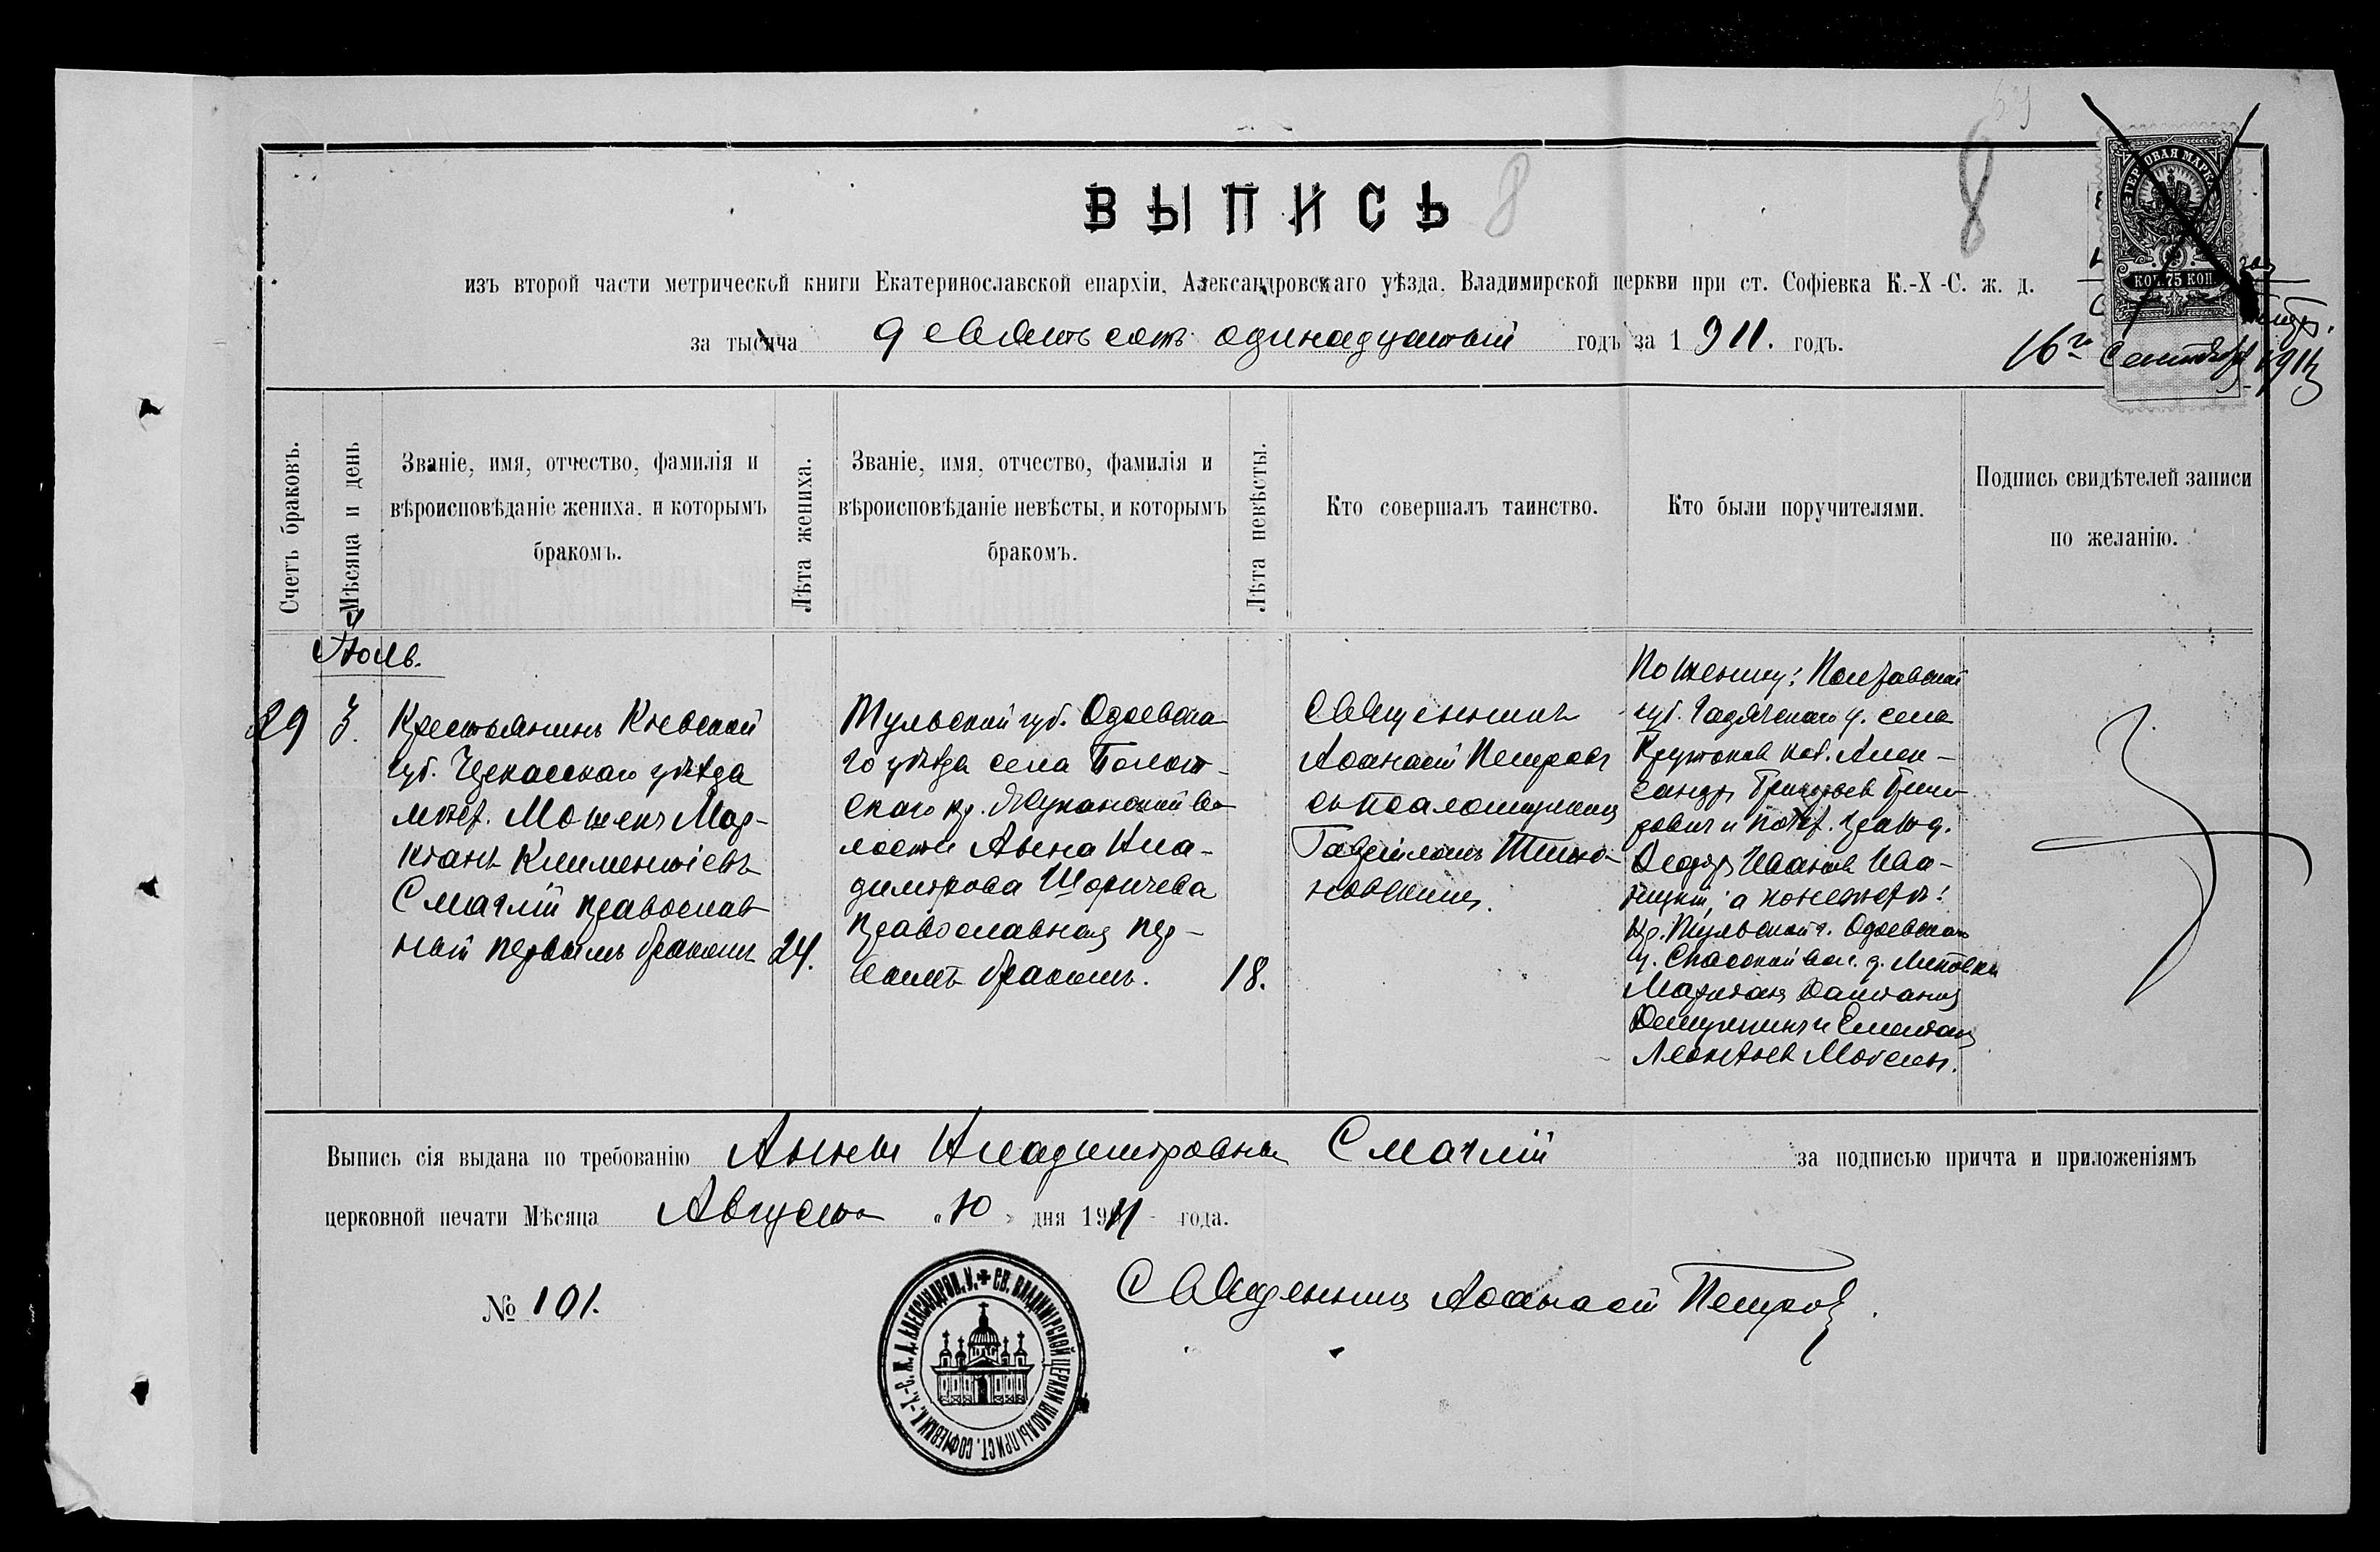 8
ВЫПИСЬ 8
ГЕРБОВАЯ МАРКА
КОП. 75 КОП.
изъ второй части метрической книги Екатеринославской епархіи, Александровскаго уѣзда, Владимирской церкви при ст. Софіевка К.-Х-С. ж. д.
за тысяча девятьсотъ одинадцатый годъ за 1911. годъ.
16го Сентября 1911
Счетъ браковъ.
Мѣсяца и день
Званіе, имя, отчество, фамилія и
вѣроисповѣданіе жениха, и которымъ
бракомъ.
Лѣта жениха.
Званіе, имя, отчество, фамилія и
вѣроисповѣданіе невѣсты, и которымъ
бракомъ.
Лѣта невѣсты.
Кто совершалъ таинство.
Кто были поручителями.
Подпись свидѣтелей записи
по желанію.
Іюль.
29
3.
Крестьянинъ Кіевской
губ. Черкасскаго уѣзда
мѣст. Мошенъ Мар-
кіанъ Климентіевъ
Смаглій православ
ный первымъ бракомъ
24.
Тульской губ. Одоевска
го уѣзда села Болот-
скаго кр. Стукановской во
лости Анна Вла-
димірова Шоричева
православная пер-
вымъ бракомъ.
18.
Священникъ
Аѳанасій Петровъ
съ псаломщикомъ
Гавріиломъ Тихо-
новскимъ.
По жениху: Полтавской
губ. Гадячскаго у. села
Крутоков каз. Алек-
сандръ Григорьев Григо
рович и потом. гражд.
Ѳеодоръ Иванов Ива-
ницкій, а по невѣстѣ:
Кр. Тульской г. Одоевскаго
у. Спасской вол. д.
Леонтьев
Выпись сія выдана по требованію Анны Владиміровны Смаглій за подписью причта и приложеніямъ
церковной печати Мѣсяца Августа „10" дня 1911 года.
№ 101.
Священникъ Аѳанасій Петровъ.
СВ. ВЛАДИМІРСКОЙ ЦЕРКВИ ШКОЛЫ ПРИ СТ. СОФІЕВКИ К.-Х.-С. Ж. Д. АЛЕКСАНДРОВ. У.